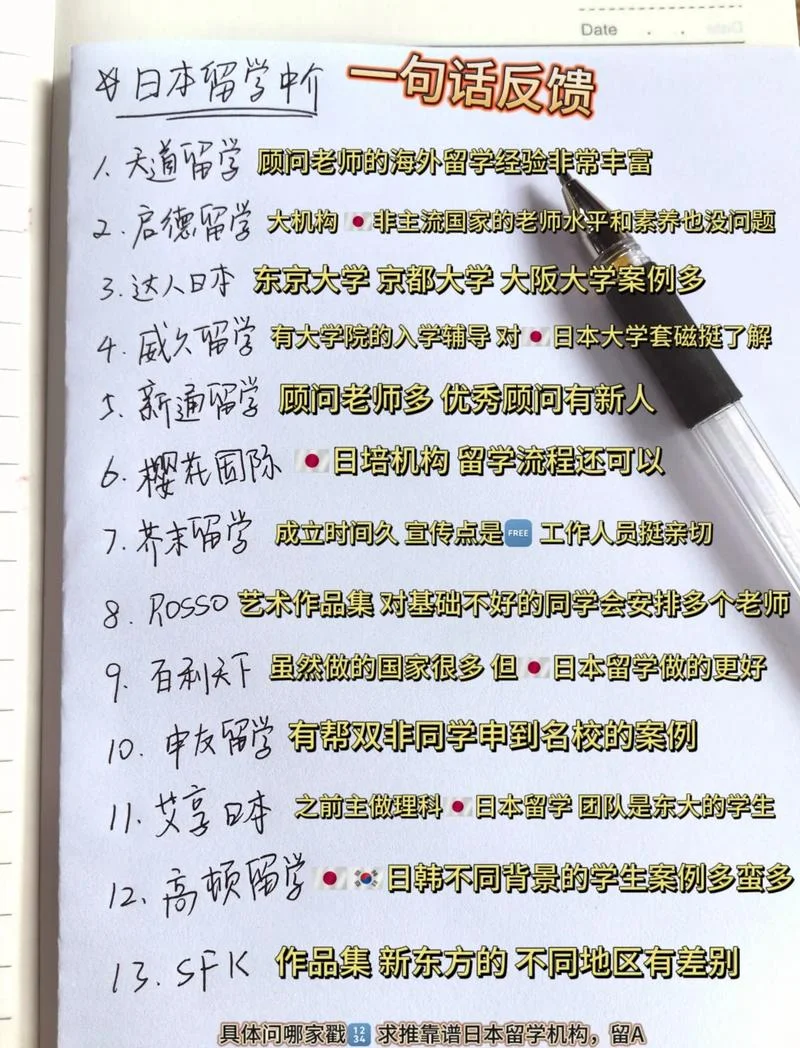 Date
日本留学中介 一句话反馈
1. 天道留学 顾问老师的海外留学经验非常丰富
2. 启德留学 大机构 🇯🇵非主流国家的老师水平和素养也没问题
3. 达人日本 东京大学 京都大学 大阪大学案例多
4. 威久留学 有大学院的入学辅导 对🇯🇵日本大学套磁挺了解
5. 新通留学 顾问老师多 优秀顾问有新人
6. 樱花国际 🇯🇵日培机构 留学流程还可以
7. 芥末留学 成立时间久 宣传点是🆓 工作人员挺亲切
8. ROSSO 艺术作品集 对基础不好的同学会安排多个老师
9. 百利天下 虽然做的国家很多 但🇯🇵日本留学做的更好
10. 申友留学 有帮双非同学申到名校的案例
11. 艾享日本 之前主做理科🇯🇵日本留学 团队是东大的学生
12. 高顿留学 🇯🇵🇰🇷日韩不同背景的学生案例多蛮多
13. SFK 作品集 新东方的 不同地区有差别
具体问哪家戳🔢 求推靠谱日本留学机构，留A